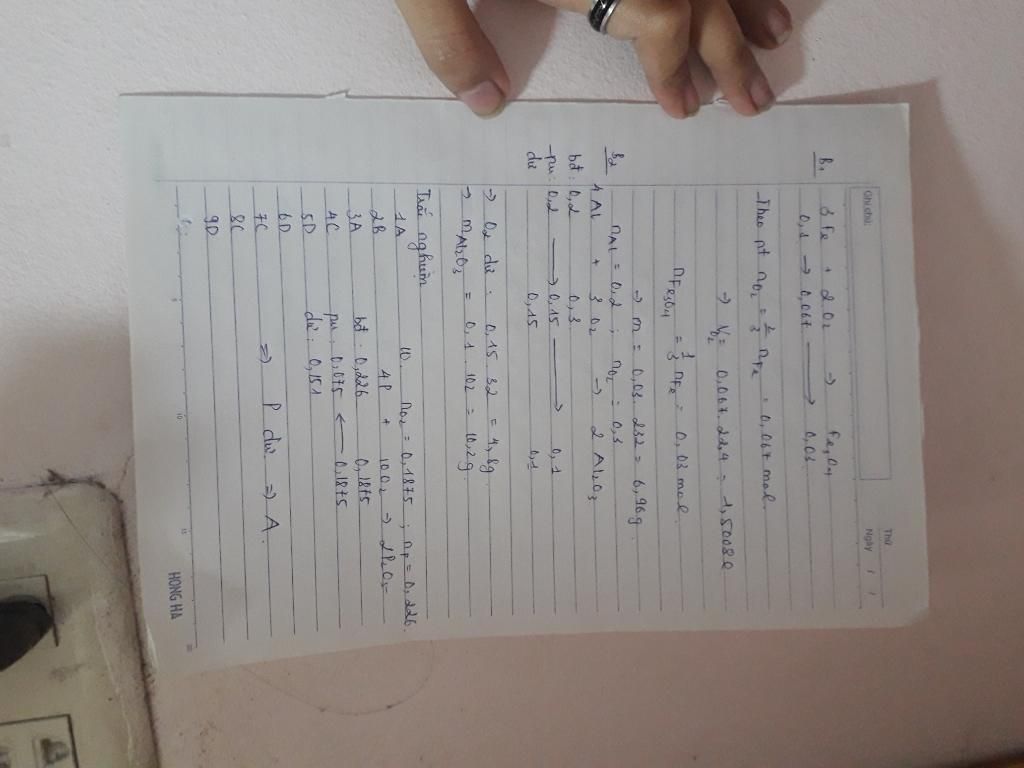 Ghi chú:
Thứ
Ngày / /
B1 3Fe + 2O2 → Fe3O4
0,1 → 0,067 → 0,03
Theo pt nO2 = 2/3 nFe = 0,067 mol
→ VO2 = 0,067.22,4 = 1,5008l
nFe3O4 = 1/3 nFe = 0,03 mol.
→ m = 0,03.232 = 6,96g.
B2 nAl = 0,2 ; nO2 = 0,3
4Al + 3O2 → 2Al2O3
bđ: 0,2 0,3
pư: 0,2 → 0,15 → 0,1
dư 0,15 0,1
→ O2 dư: 0,15.32 = 4,8g
→ mAl2O3 = 0,1.102 = 10,2g.
Trắc nghiệm
1A 10. nO2 = 0,1875 ; nP = 0,226.
2B 4P + 10O2 → 2P2O5
3A bđ: 0,226 0,1875
4C pư: 0,075 ← 0,1875
5D dư: 0,151
6D
7C ⇒ P dư ⇒ A.
8C
9D
0 5 10 15 20
HONG HA